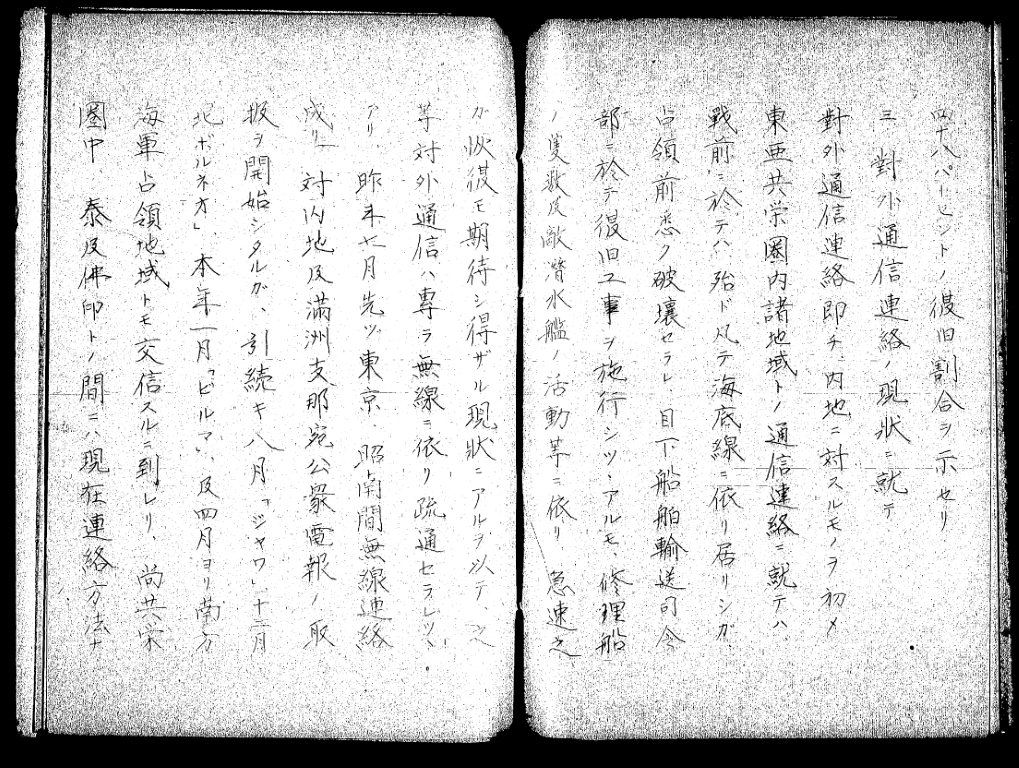 四十八パーセントノ復旧割合ヲ示セリ
三 對外通信連絡ノ現狀ニ就テ
對外通信連絡即チ、内地ニ対スルモノヲ初メ
東亜共栄圏内諸地域トノ通信連絡ニ就テハ
戰前ニ於テハ殆ド凡テ海底線ニ依リ居リシガ、
占領前悉ク破壊セラレ、目下船舶輸送司令
部ニ於テ復旧工事ヲ施行シツヽアルモ、修理船
ノ隻数及敵潜水艦ノ活動等ニ依リ、急速之
カ恢復モ期待シ得ザル現状ニアルヲ以テ、之
等対外通信ハ専ラ無線ニ依リ疏通セラレツヽ
アリ 昨年七月先ヅ東京、昭南間無線連絡
成リ、対内地及満洲支那宛公衆電報ノ取
扱ヲ開始シタルガ、引続キ八月「ジャワ」、十二月
北ボルネオ」、本年一月「ビルマ」、及四月ヨリ南方
海軍占領地域トモ交信スルニ到レリ、尚共栄
圏中、泰及佛印トノ間ニハ現在連絡方法ナ